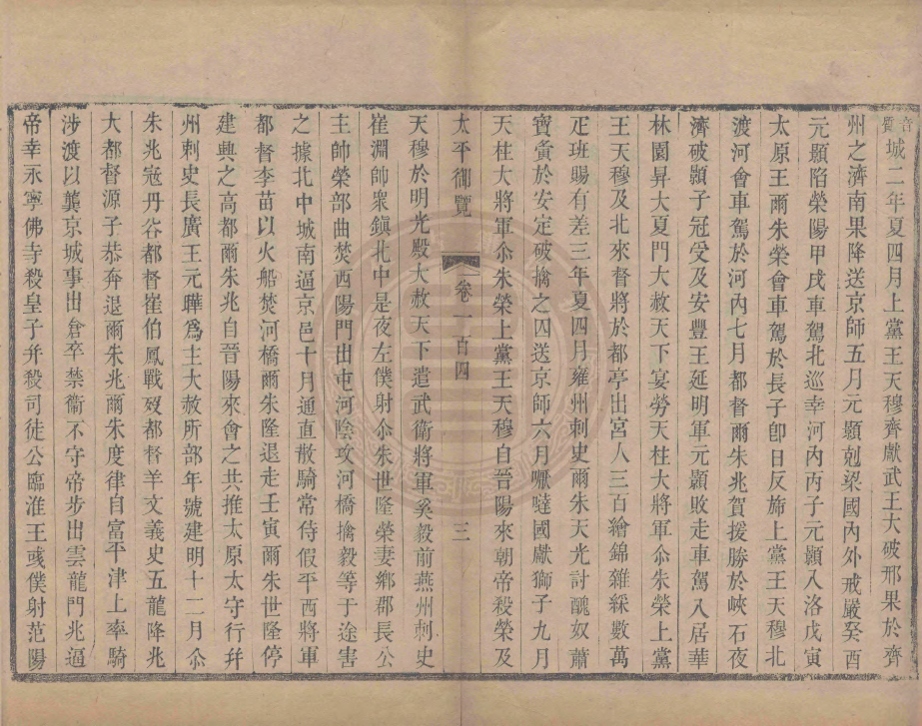 音釁城二年夏四月上黨王天穆齊獻武王大破邢果於齊
州之濟南果降送京師五月元顥剋梁國內外戒嚴癸酉
元顥陷榮陽甲戌車駕北巡幸河內丙子元顥入洛戊寅
太原王爾朱榮會車駕於長子卽日反斾上黨王天穆北
渡河會車駕於河內七月都督爾朱兆賀援勝於峽石夜
濟破顥子冠受及安豐王延明軍元顥敗走車駕入居華
林園昇大夏門大赦天下宴勞天柱大將軍尒朱榮上黨
王天穆及北來督將於都亭出宮人三百繒錦雜綵數萬
疋班賜有差三年夏四月雍州刺史爾朱天光討醜奴蕭
寶夤於安定破擒之囚送京師六月嚈噠國獻獅子九月
天柱大將軍尒朱榮上黨王天穆自晉陽來朝帝殺榮及
太平御覽 卷一百四 三
天穆於明光殿大赦天下遣武衛將軍奚毅前燕州刺史
崔淵帥衆鎮北中是夜左僕射尒朱世隆榮妻鄉郡長公
主帥榮部曲焚西陽門出屯河陰攻河橋擒毅等于途害
之據北中城南逼京邑十月通直散騎常侍假平西將軍
都督李苗以火船焚河橋爾朱隆退走壬寅爾朱世隆停
建興之高都爾朱兆自晉陽來會之共推太原太守行幷
州刺史長廣王元曄爲主大赦所部年號建明十二月尒
朱兆宼丹谷都督崔伯鳳戰歿都督羊文義史五龍降兆
大都督源子恭奔退爾朱兆爾朱度律自富平津上率騎
涉渡以襲京城事出倉卒禁衞不守帝步出雲龍門兆逼
帝幸永寧佛寺殺皇子幷殺司徒公臨淮王彧僕射范陽